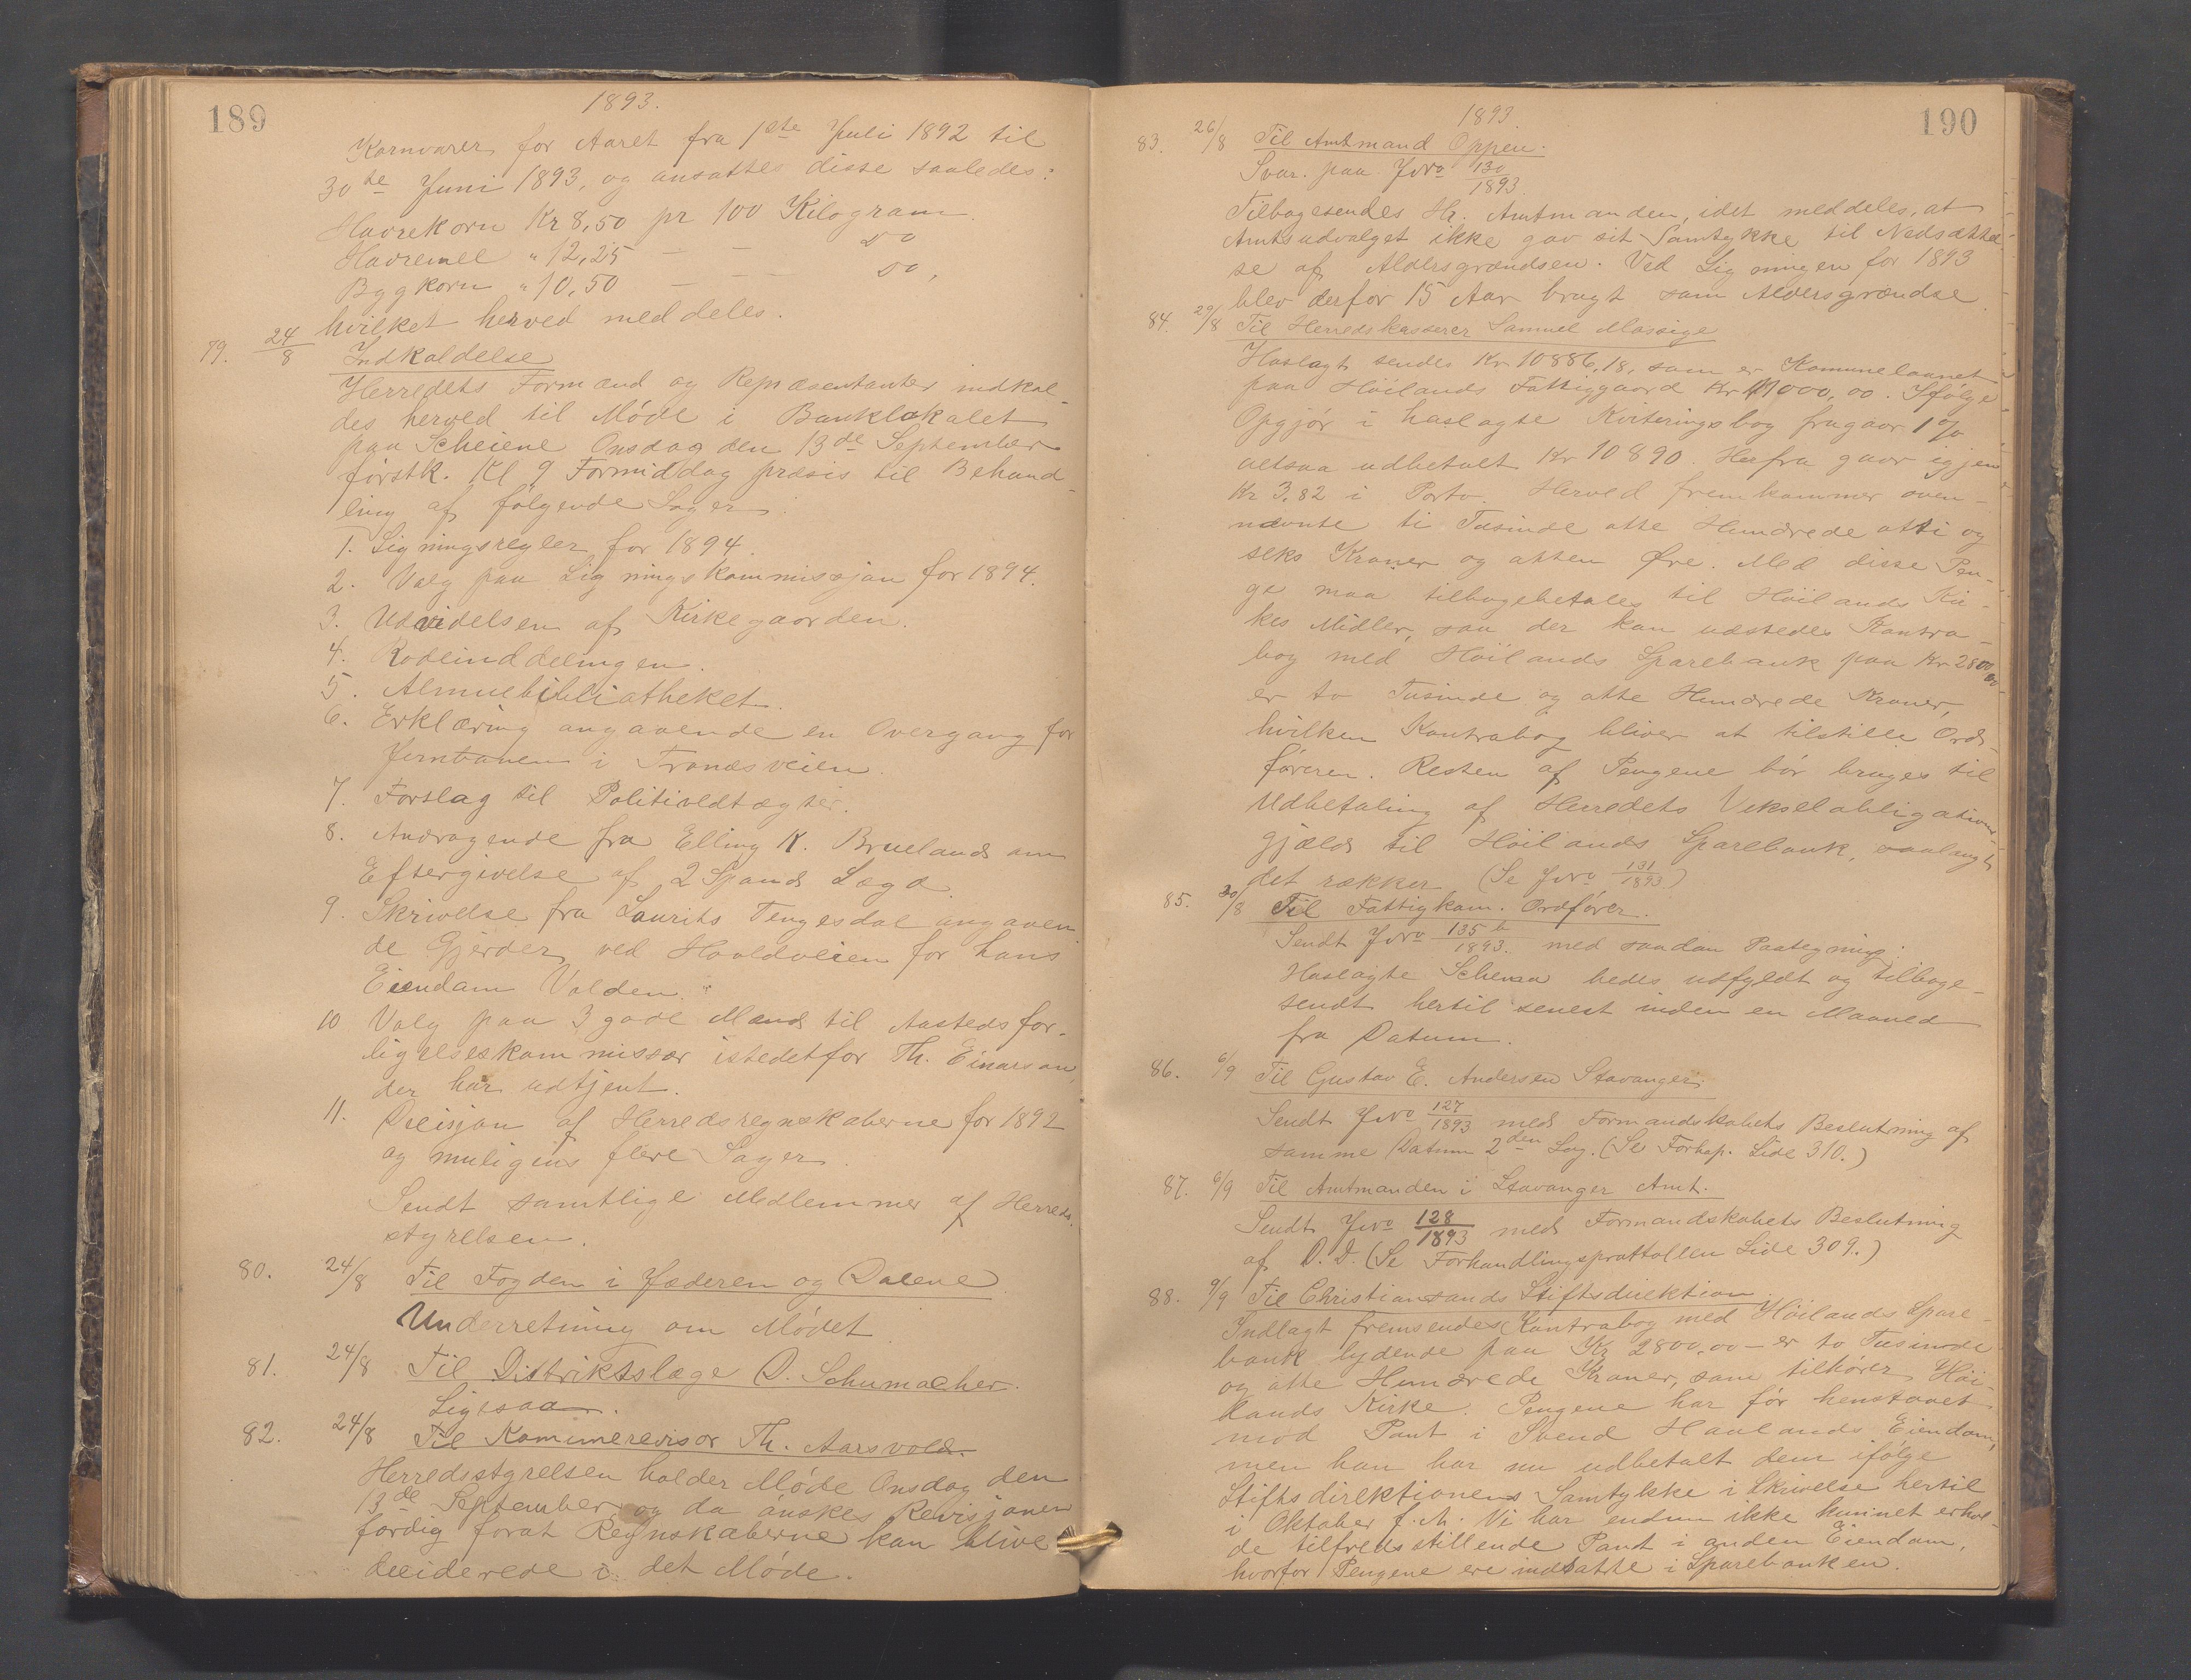 189
1893.
Kornvarer for Aaret fra 1ste Juli 1892 til
30te Juni 1893, og ansattes disse saaledes:
Havrekorn Kr 8,50 pr 100 Kilogram.
Havremel " 12,25 — — do
Bygkorn " 10,50 — — do,
hvilket herved meddeles.
79. 24/8 Indkaldelse
Herredets Formænd og Repræsentanter indkal-
des herved til Møde i Banklokalet
paa Scheiene Onsdag den 13de September
førstk. Kl 9 Formiddag præsis til Behand-
ling af følgende Sager:
1. Ligningsregler for 1894.
2. Valg paa Ligningskommissjon for 1894.
3. Udvidelsen af Kirkegaarden.
4. Rodeinddelingen.
5. Almuebibliotheket.
6. Erklæring angaaende en Overgang for
Jernbanen i Tronesveien.
7. Forslag til Politivedtægter.
8. Andragende fra Elling K. Bruelands om
Eftergivelse af 2 Spands Lægd.
9. Skrivelse fra Laurits Tengesdal angaaen-
de Gjerder ved Hovldveien for hans
Eiendom Volden.
10 Valg paa 3 gode Mænd til Aastedsfor-
ligelseskommissær istedetfor Th. Einarson,
der har udtjent.
11. Decisjon af Herredsregnskaberne for 1892
og muligens flere Sager.
Sendt samtlige Medlemmer af Herreds-
styrelsen.
80. 24/8 Til Fogden i Jæderen og Dalene
Underretning om Mødet
81. 24/8 Til Distriktslæge D. Schumacher.
Ligesaa.
82. 24/8 Til Kommunerevisor Th. Aarsvold.
Herredsstyrelsen holder Møde Onsdag den
13de September, og da ønskes Revisjonen
færdig forat Regnskaberne kan blive
deciderede i det Møde.
190
1893.
83. 26/8 Til Amtmand Oppen.
Svar. paa JNo 130/1893.
Tilbagesendes Hr. Amtmanden, idet meddeles, at
Amtsudvalget ikke gav sit Samtykke til Nedsættel-
se af Aldersgrændsen. Ved Ligningen for 1893
blev derfor 15 Aar brugt som Aldersgrændse
84. 29/8 Til Herredskasserer Samuel Mossige
Hoslagt sendes Kr 10886,18, som er Kommunelaanet
paa Høilands Fattiggaard Kr 11000,00. Ifølge
Opgjør i hoslagte Kviteringsbog fragaar 1%
altsaa udbetalt Kr 10890. Herfra gaar igjen
Kr 3,82 i Porto. Herved fremkommer oven-
nævnte ti Tusinde otte Hundrede otti og
seks Kroner og atten Øre. Med disse Pen-
ge maa tilbagebetales til Høilands Kir-
kes Midler, saa der kan udstedes Kontra-
bog med Høilands Sparebank paa Kr 2800,00
er to Tusinde og otte Hundrede Kroner,
hvilken Kontrabog bliver at tilstille Ord-
føreren. Resten af Pengene bør bruges til
Udbetaling af Herredets Vekselobligations-
gjæld til Høilands Sparebank, saalangt
det rækker (Se JNo 131/1893)
85. 30/8 Til Fattigkom. Ordfører.
Sendt JNo 135 b/1893. med saadan Paategning:
Hoslagte Schema bedes udfyldt og tilbage-
sendt hertil senest inden en Maaned
fra Datum.
86. 6/9 Til Gustav E. Andersen Stavanger.
Sendt JNo 127/1893 med Formandskabets Beslutning af
samme Datum 2den Sag. (Se Forhap. Side 310.)
87. 6/9 Til Amtmanden i Stavanger Amt.
Sendt JNo 128/1893 med Formandskabets Beslutning
af D. D. (Se Forhandlingsprottollen Side 309.)
88. 9/9 Til Christianssands Stiftsdirektion.
Indlagt fremsendes Kontrabog med Høilands Spare-
bank lydende paa Kr 2800,00 – er to Tusinde
og otte Hundrede Kroner, som tilhører Høi-
lands Kirke. Pengene har før henstaaet
mod Pant i Svend Haalands Eiendom,
men han har nu udbetalt dem ifølge
Stiftsdirektionens Samtykke i Skrivelse hertil
i Oktober f. A. Vi har endnu ikke kunnet erhol-
de tilfredsstillende Pant i anden Eiendom,
hvorfor Pengene ere indsatte i Sparebanken.